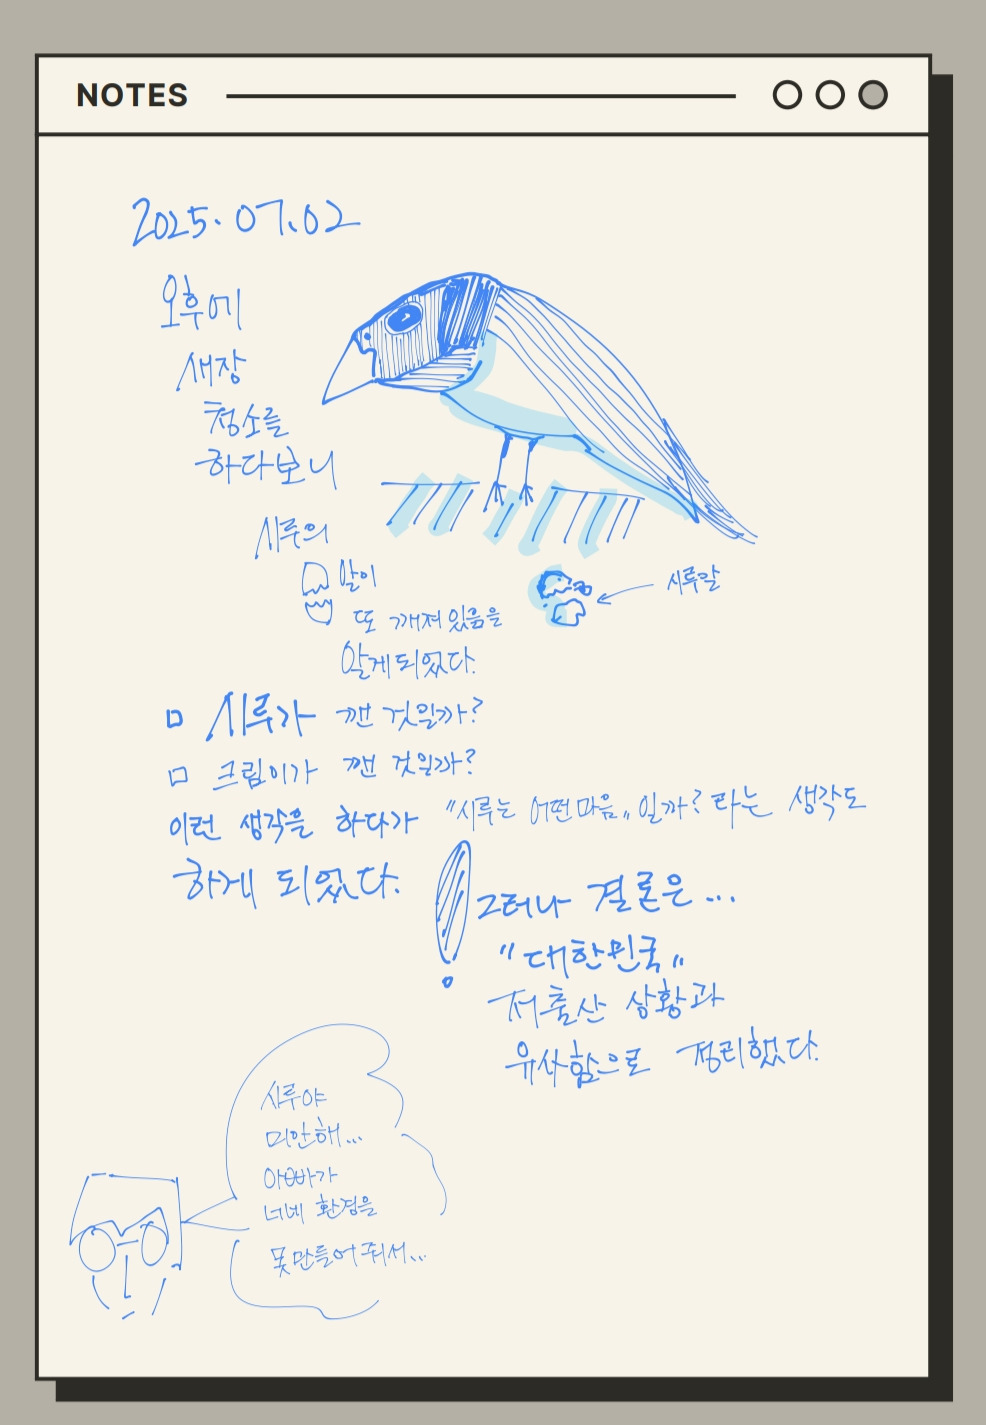 NOTES
2025.07.02
오후에
새장
청소를
하다보니
시루의
알이
또 깨져있음을
알게되었다.
시루알
시루가 깬 것일까?
크림이가 깬 것일까?
이런 생각을 하다가 "시루는 어떤마음"일까? 라는 생각도
하게 되었다.
그러나 결론은...
"대한민국"
저출산 상황과
유사함으로 정리했다.
시루야
미안해...
아빠가
너네 환경을
못만들어줘서...